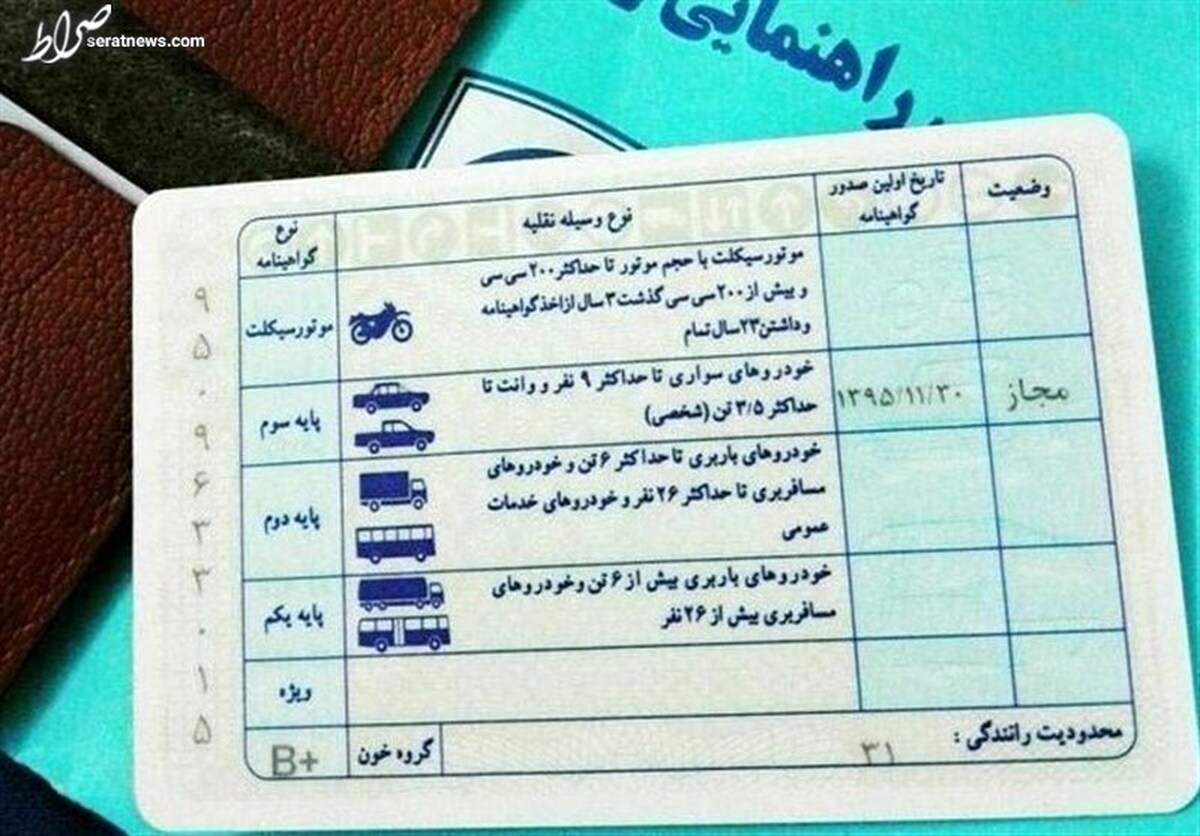 صراط
seratnews.com
راهنمایی
وضعیت
تاریخ اولین صدور
گواهینامه
نوع وسیله نقلیه
نوع
گواهینامه
موتورسیکلت با حجم موتور تا حداکثر ۲۰۰ سی سی
و بیش از ۲۰۰ سی سی گذشت ۳ سال از اخذ گواهینامه
و داشتن ۲۳ سال تمام
موتورسیکلت
مجاز
۱۳۹۵/۱۱/۳۰
خودروهای سواری تا حداکثر ۹ نفر و وانت تا
حداکثر ۳/۵ تن (شخصی)
پایه سوم
خودروهای باربری تا حداکثر ۶ تن و خودروهای
مسافربری تا حداکثر ۲۶ نفر و خودروهای خدمات
عمومی
پایه دوم
خودروهای باربری بیش از ۶ تن و خودروهای
مسافربری بیش از ۲۶ نفر
پایه یکم
ویژه
محدودیت رانندگی :
۳۱
گروه خون
B+
۹
۵
۰
۹
۶
۳
۳
۰
۱
۵